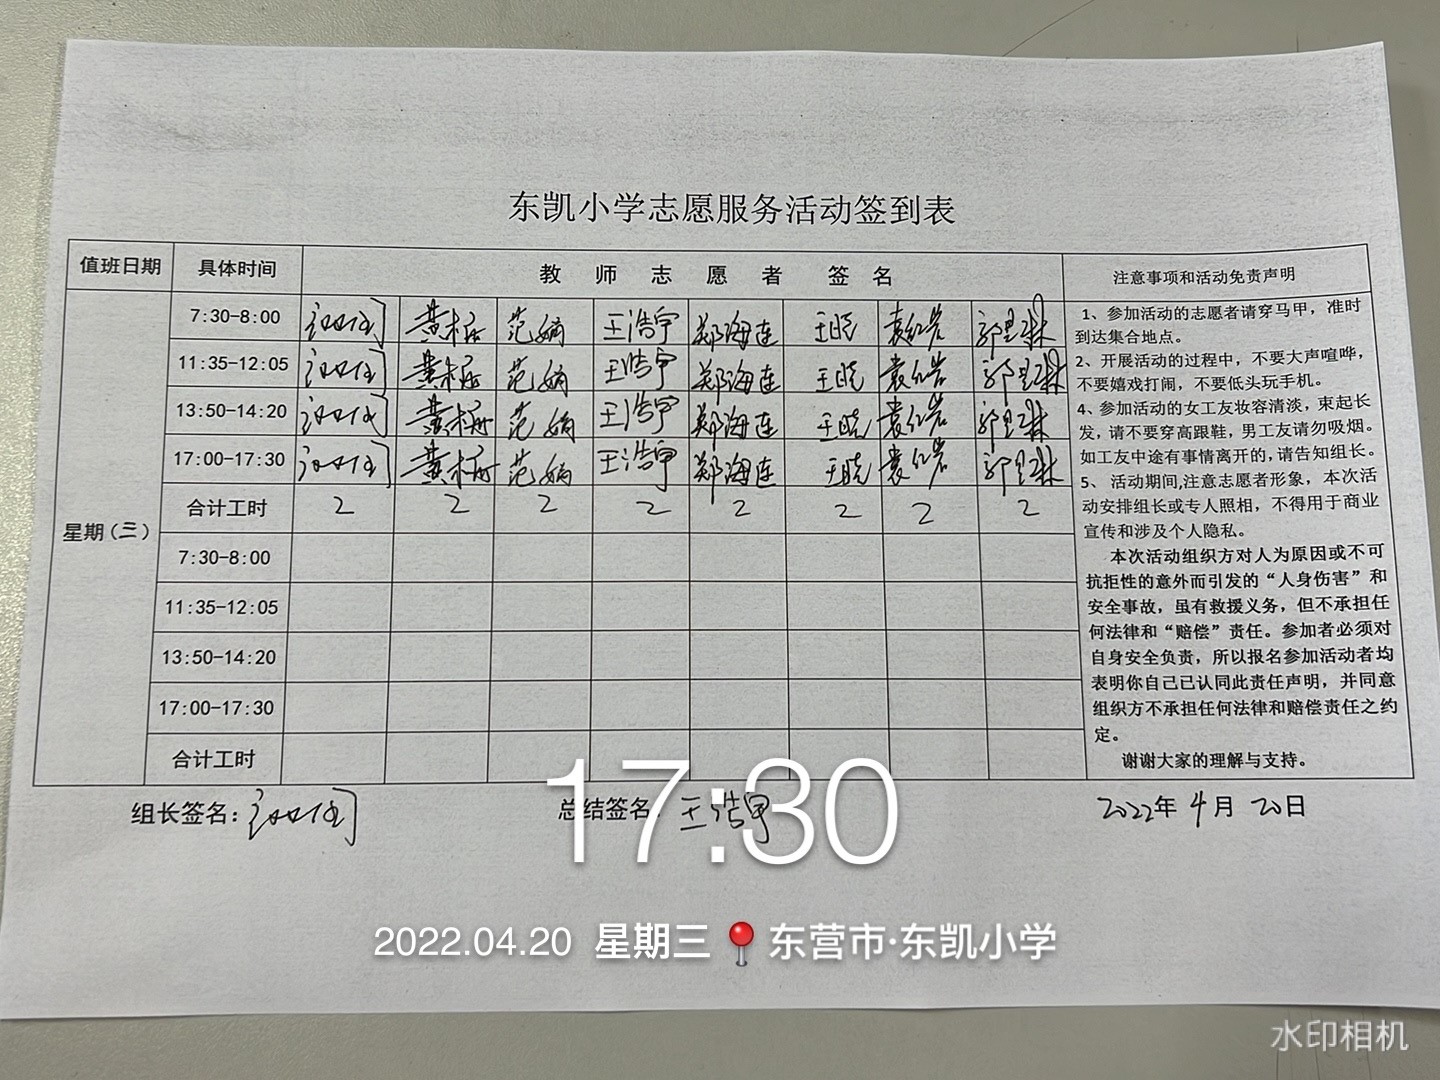 东凯小学志愿服务活动签到表
值班日期 具体时间 教师志愿者 签名 注意事项和活动免责声明
7:30-8:00 范嫡 王浩宇 郑海连 王晓 袁红岩
11:35-12:05 范嫡 王浩宇 郑海连 王晓 袁红岩
13:50-14:20 范嫡 王浩宇 郑海连 王晓 袁红岩
17:00-17:30 范嫡 王浩宇 郑海连 王晓 袁红岩
合计工时 2 2 2 2 2 2 2 2
星期(三)
7:30-8:00
11:35-12:05
13:50-14:20
17:00-17:30
合计工时
1、参加活动的志愿者请穿马甲，准时
到达集合地点。
2、开展活动的过程中，不要大声喧哗，
不要嬉戏打闹，不要低头玩手机。
4、参加活动的女工友妆容清淡，束起长
发，请不要穿高跟鞋，男工友请勿吸烟。
如工友中途有事情离开的，请告知组长。
5、活动期间,注意志愿者形象，本次活
动安排组长或专人照相，不得用于商业
宣传和涉及个人隐私。
本次活动组织方对人为原因或不可
抗拒性的意外而引发的“人身伤害”和
安全事故，虽有救援义务，但不承担任
何法律和“赔偿”责任。参加者必须对
自身安全负责，所以报名参加活动者均
表明你自己已认同此责任声明，并同意
组织方不承担任何法律和赔偿责任之约
定。
谢谢大家的理解与支持。
组长签名： 总结签名：王浩宇 2022年 4月 20日
17:30
2022.04.20 星期三 东营市·东凯小学
水印相机